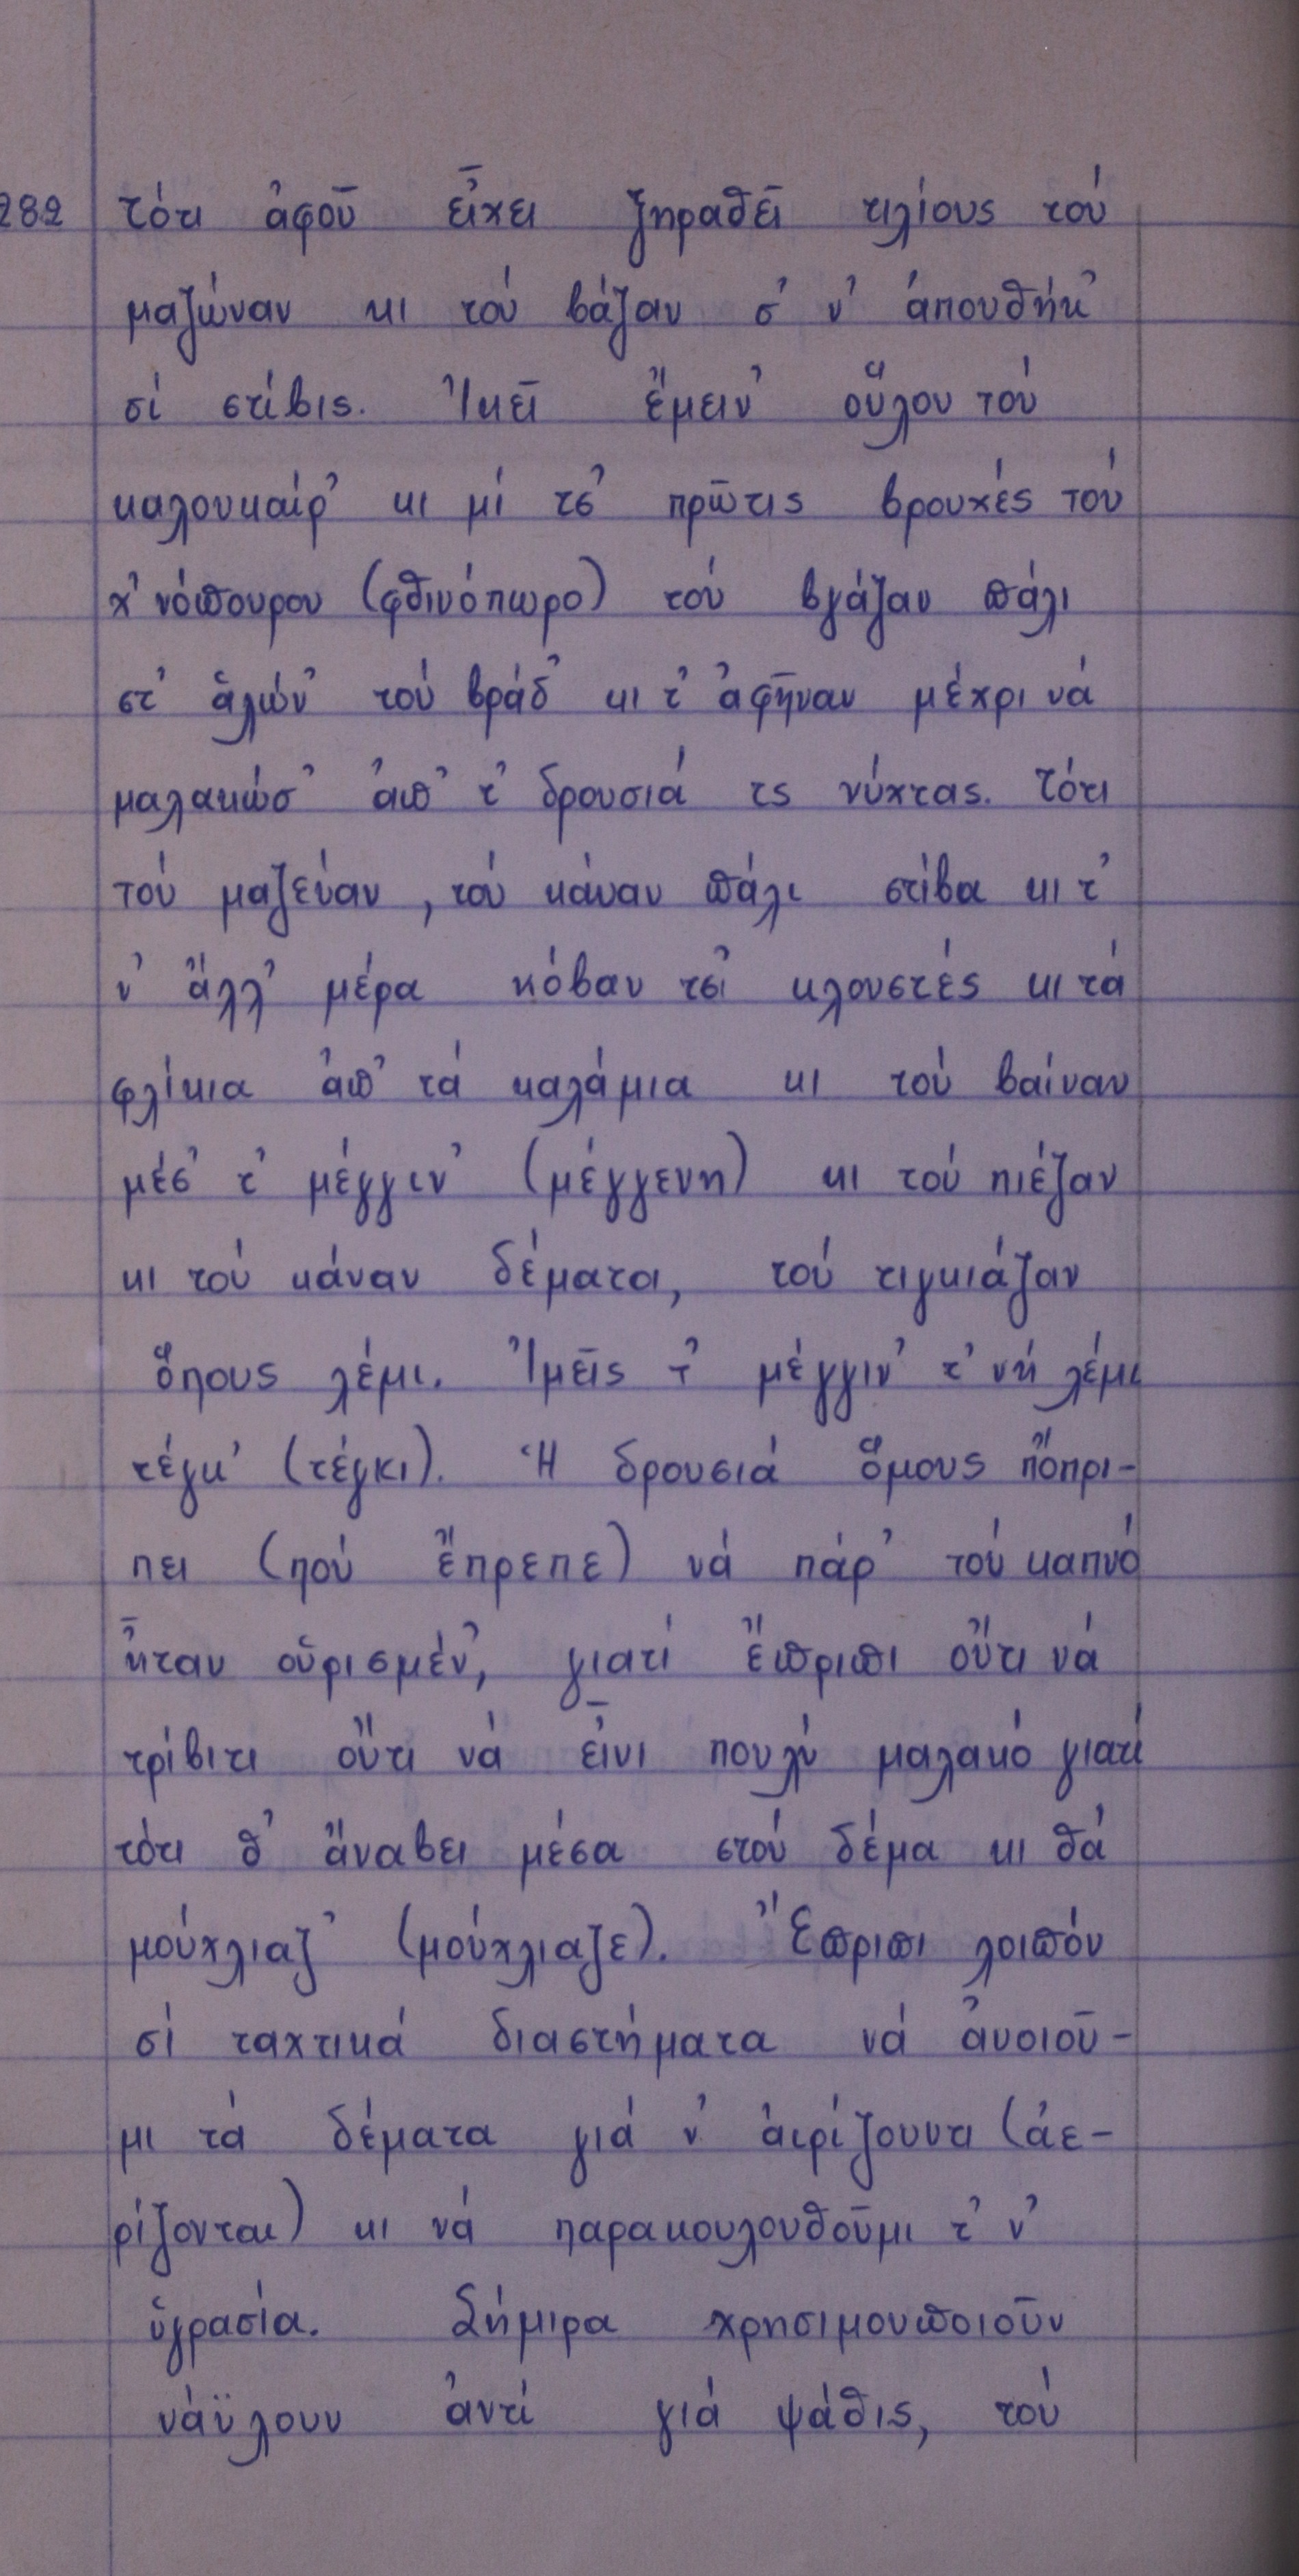 282 τότι ἀφοῦ εἶχει ξηραθεῖ τιλίους τού
μαζώναν κι τού βάζαν σ' ν' ἀπουθήκ'
σί στίβις. Ἰκεῖ ἔμειν' οὕλου τού
καλουκαίρ' κι μί τς' πρῶτις βρουχές τού
χ' νόπουρου (φθινόπωρο) τού βγάζαν πάλι
στ' ἁλών' τού βράδ' κι τ' ἀφῆναν μέχρι νά
μαλακώσ' ἀπ' τ' δρουσιά τς νύχτας. Τότι
τού μαζεύαν, τού κάναν πάλι στίβα κι τ'
ν' ἄλλ' μέρα κόβαν τσί κλουστές κι τά
φλίκια ἀπ' τά καλάμια κι τού βαίναν
μέσ' τ' μέγγιν' (μέγγενη) κι τού πιέζαν
κι τού κάναν δέματα, τού τιγκιάζαν
ὅπους λέμι. Ἰμεῖς τ' μέγγιν' τ' νή λέμι
τέγκ' (τέγκι). Ἡ δρουσιά ὅμους πὄπρι-
πει (πού ἔπρεπε) νά πάρ' τού καπνό
ἦταν οὑρισμέν', γιατί ἔπριπι οὔτι νά
τρίβιτι οὔτι νά εἶνι πουλύ μαλακό γιατί
τότι θ' ἄναβει μέσα στού δέμα κι θά
μούχλιαζ' (μούχλιαζε). Ἔπριπι λοιπόν
σί ταχτικά διαστήματα νά ἀνοιοῦ-
μι τά δέματα γιά ν' ἀιρίζουντι (ἀε-
ρίζονται) κι νά παρακουλουθοῦμι τ' ν'
ὑγρασία. Σήμιρα χρησιμουποιοῦν
νάϋλουν ἀντί γιά ψάθις, τού